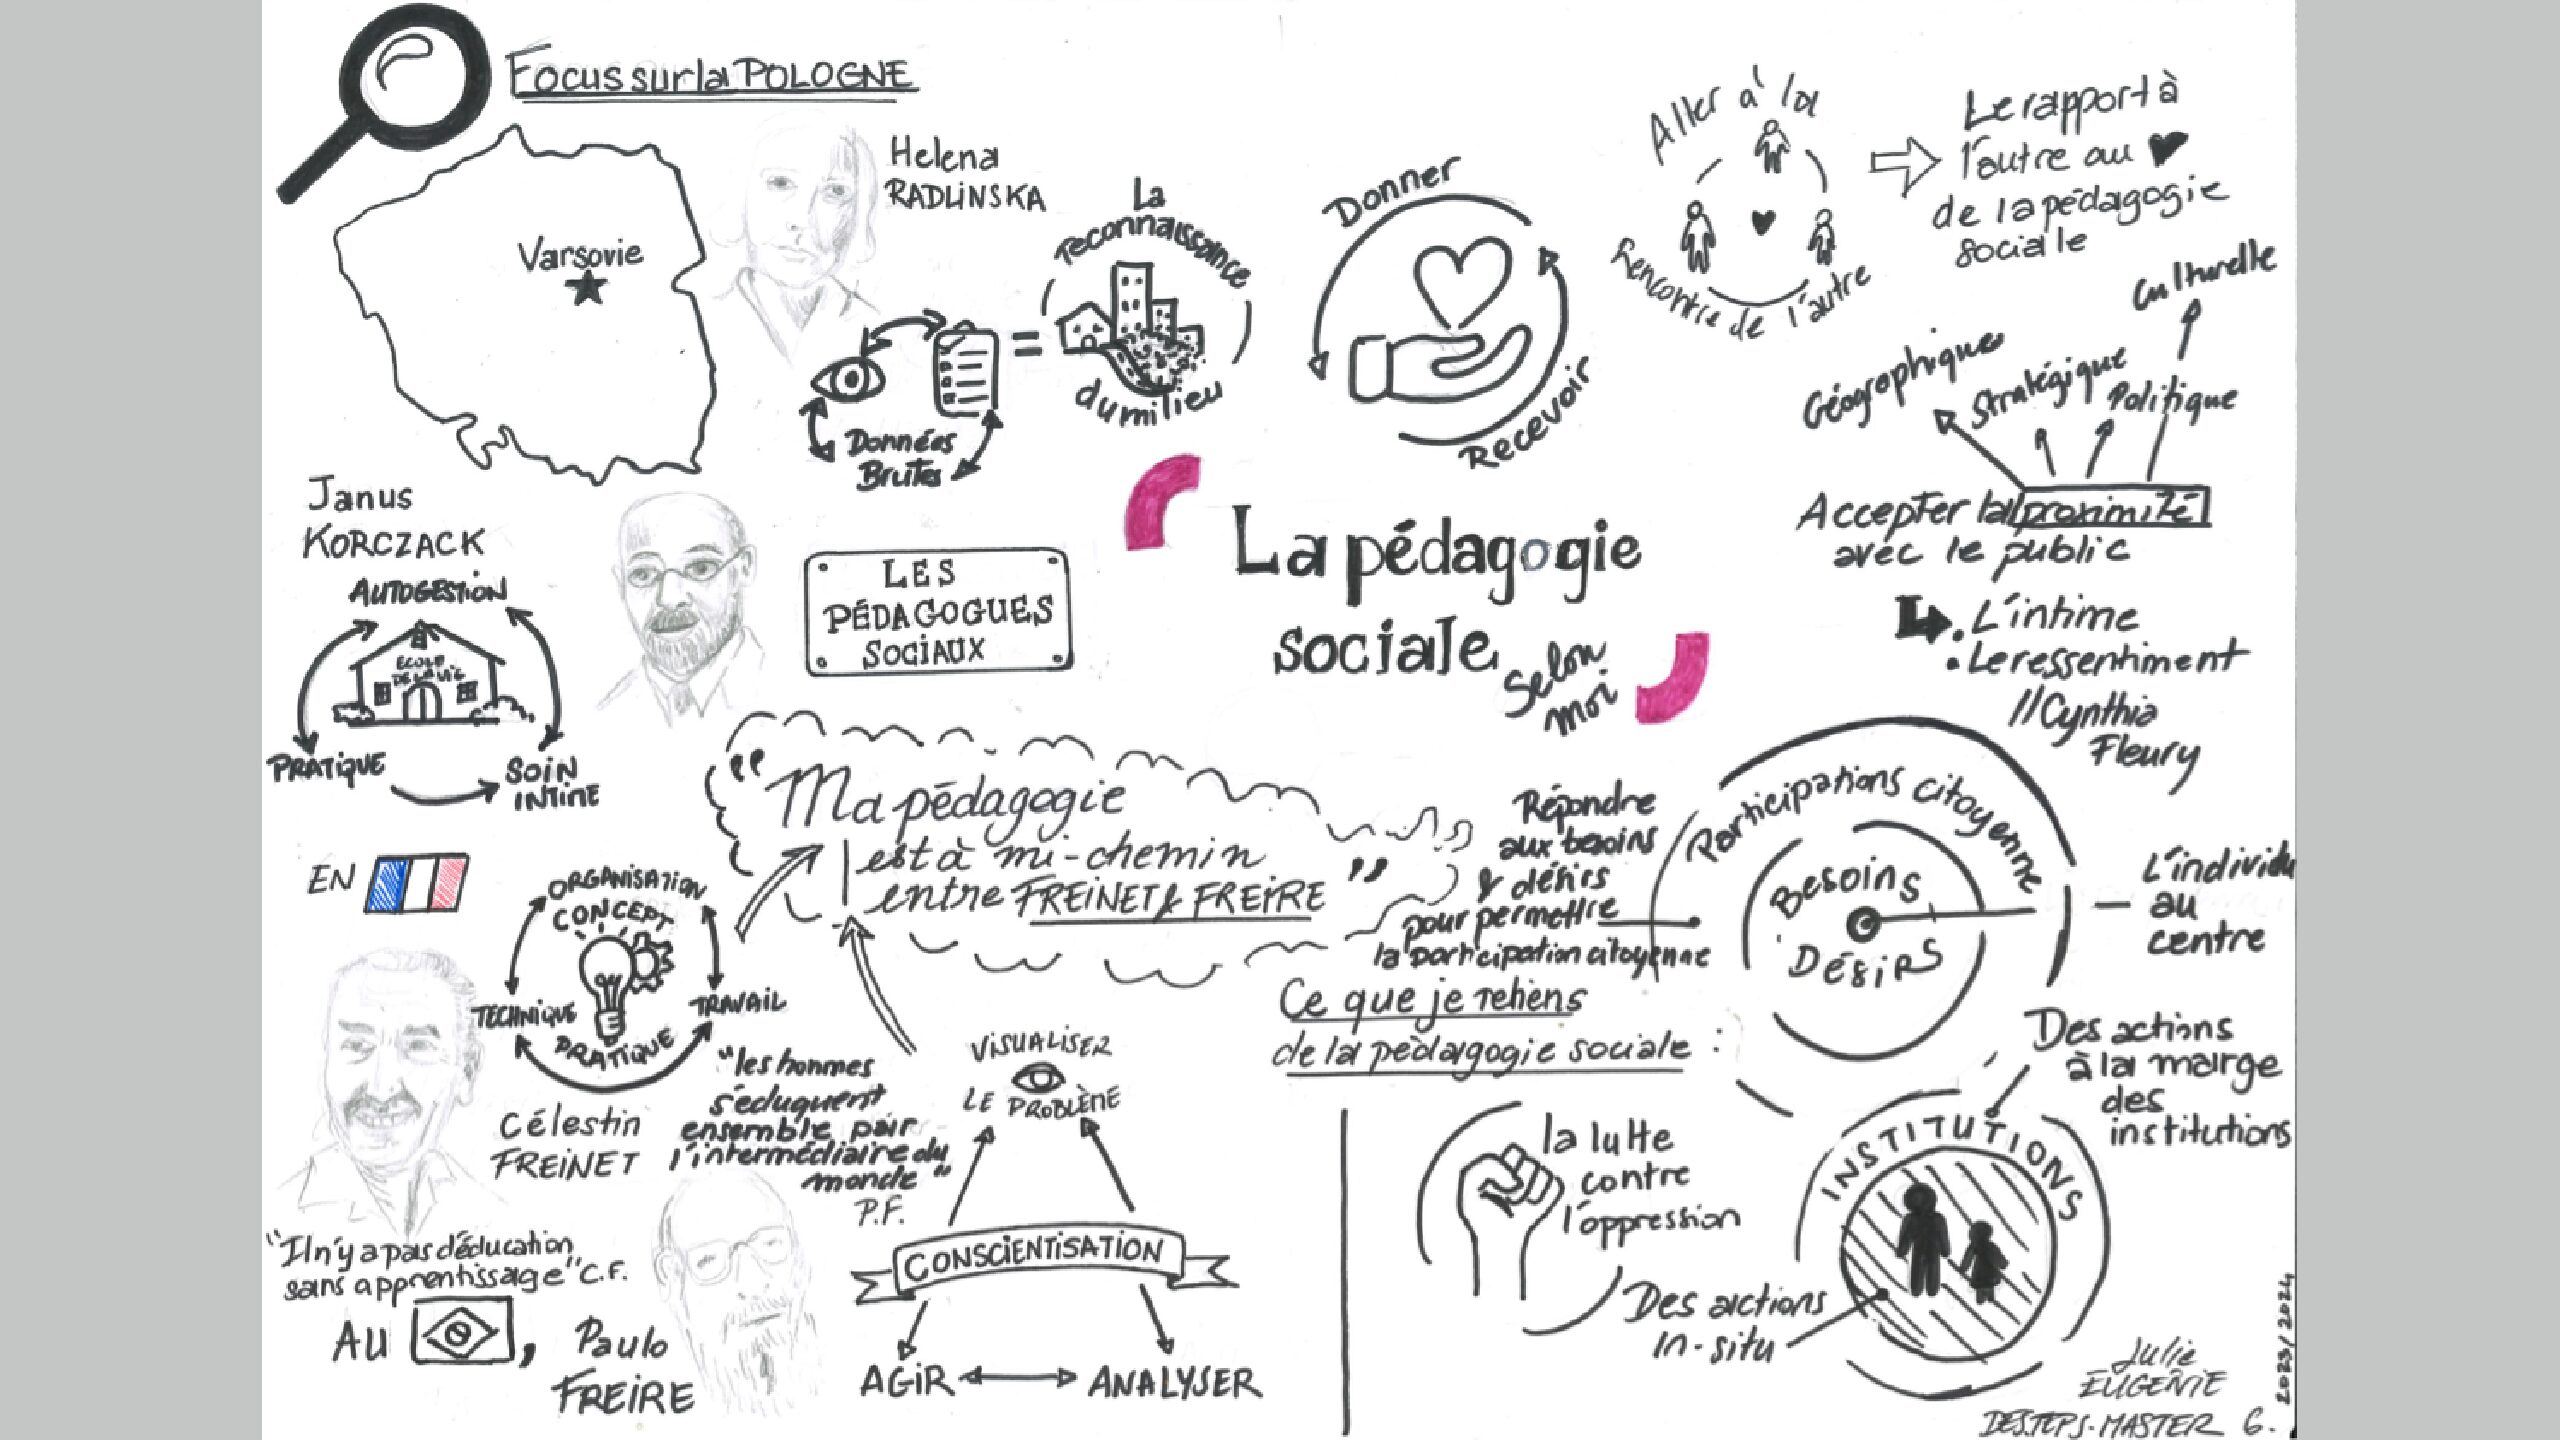 Focus sur la POLOGNE
Varsovie
Helena
RADLINSKA
Données
Brutes
=
La
reconnaissance
du milieu
Janus
KORCZACK
AUTOGESTION
ECOLE
DE LA VIE
PRATIQUE
SOIN
INTIME
LES
PÉDAGOGUES
SOCIAUX
Donner
Recevoir
Aller à la
Rencontre de l'autre
Le rapport à
l'autre au
de la pédagogie
sociale
Culturelle
Géographique
Stratégique
Politique
Accepter la proximité
avec le public
. L'intime
. Le ressentiment
// Cynthia
Fleury
La pédagogie
sociale
Selon
moi
"Ma pédagogie
est à mi-chemin
entre FREINET & FREIRE"
EN
ORGANISATION
CONCEPT
TECHNIQUE
TRAVAIL
PRATIQUE
Célestin
FREINET
"Il n'y a pas d'éducation
sans apprentissage" C.F.
AU
,
Paulo
FREIRE
"les hommes
s'éduquent
ensemble par
l'intermédiaire du
monde"
P.F.
VISUALISER
LE PROBLÈME
CONSCIENTISATION
AGIR
ANALYSER
Répondre
aux besoins
& désirs
pour permettre
la participation citoyenne
Participations citoyenne
Besoins
Désirs
L'individu
au
centre
Ce que je retiens
de la pédagogie sociale :
la lutte
contre
l'oppression
Des actions
à la marge
des
institutions
INSTITUTIONS
Des actions
in-situ
Julie
EUGENIE
DESTEPS-MASTER G.
2023/2024